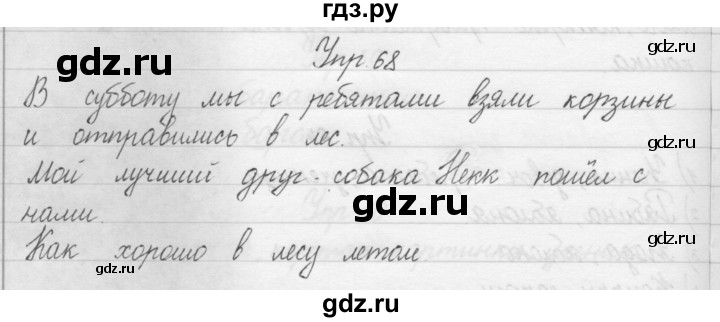 гдз.ру
Упр. 68
gdz.ru
gdz.ru
В субботу мы с ребятами взяли корзины
и отправились в лес.
gdz.ru
Мой лучший друг - собака Некк пошёл с
нами.
gdz.ru
gdz.ru
Как хорошо в лесу летом
gdz.ru
gdz.ru